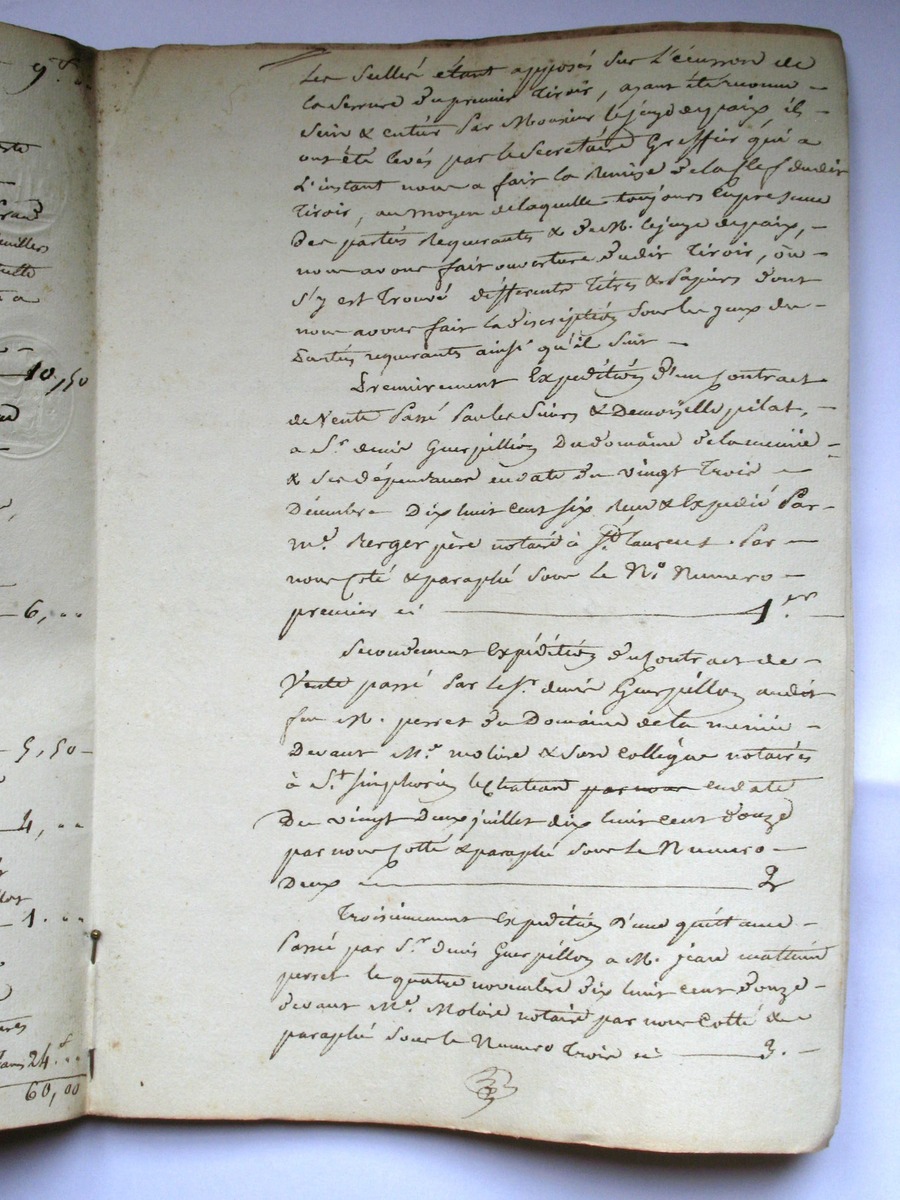 9.d
10,50
6,
5,50
4,
1.
24.
60,00
Les Scellés étant apposés sur L'écusson de
la serrure du premier Tiroir, ayant été reconnu
Sain & entier Par Monsieur le juge de paix, ils
ont été levés par le Secrétaire Greffier qui a
L'instant nous a fait la Remise de la Clef dudit
Tiroir, au moyen de laquelle toujours En presence
Des partés Requerants & de M. le juge de paix,
nous avons fait ouverture dudit Tiroir, où
S'y est Trouvé différents Titres & Papiers dont
nous avons fait la discription sous les yeux des
Partés requerants ainsi qu'il suit
Premierement Expedition d'un Contract
de Vente Passé Par les Sieurs & Demoiselle pilat,
a Sr. denis Guerpillon Du domaine de la
& Ses dépendances en date du vingt Trois
Décembre Dix huit cent six Reçu & Expedié Par
me. Berger père notaire à St. Laurent. Par
nous Coté & paraphé sous le No. Numero
premier ci 1er
Secondement Expédition du Contract de
Vente passé Par le Sr. denis Guerpillon audit
feu M. perret du Domaine de la
Devant Me. molire & son Collègue notaires
à St. Simphorien le Chateau par nous en date
Du vingt Deux juillet dix huit cent douze
par nous Cotté & paraphé sous le Numero
Deux 2
Troisiemement Expedition d'une quittance
Passé par Sr. denis Guerpillon a M. jean matthieu
perret le quatre novembre dix huit cent douze
devant Me. Molire notaire par nous Cotté &
paraphé sous le Numero Trois ci 3.